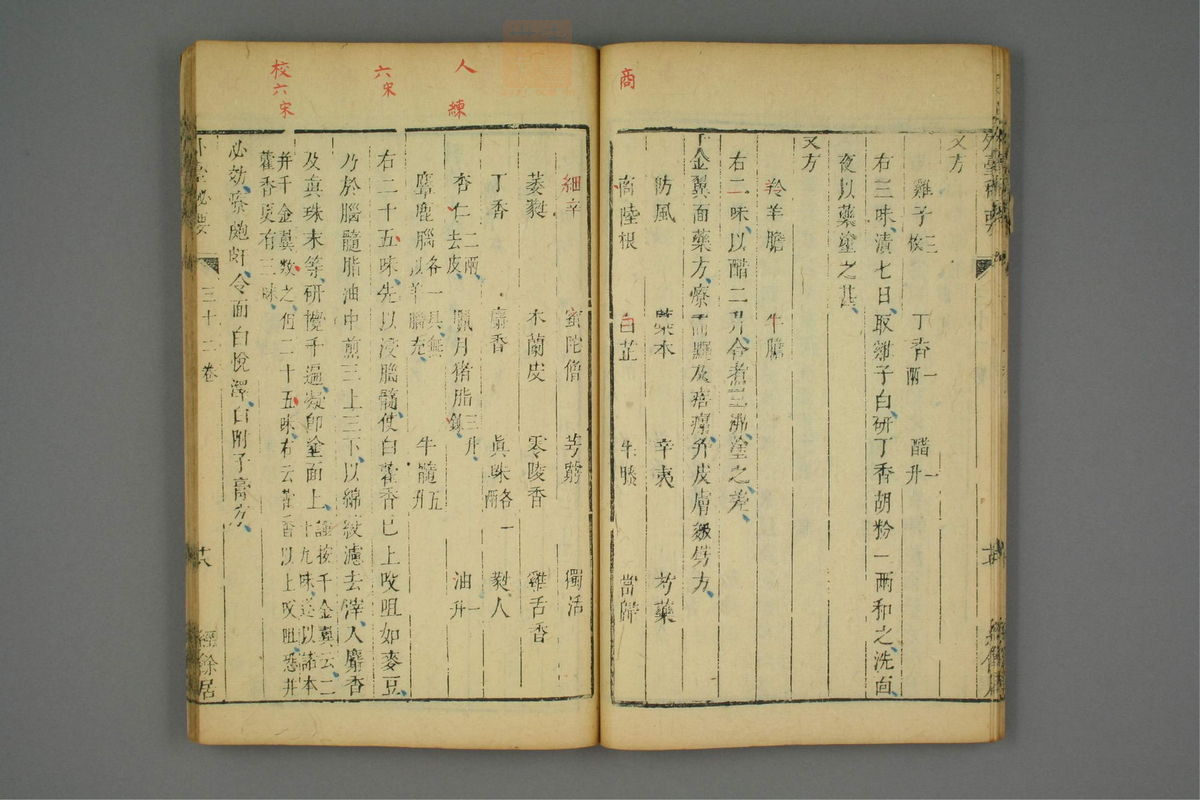 又方
雞子三枚 丁香一兩 醋一升
右三味漬七日取雞子白研丁香胡粉一兩和之洗面
夜以藥塗之甚
又方
羚羊膽 牛膽
右二味以醋二升合煮三沸塗之差
千金翼面藥方療及皮膚皴劈方
防風 藁本 辛夷 芍藥
商陸根 白芷 牛膝 當歸
商
細辛 蜜陀僧 芎藭 獨活
萎蕤 木蘭皮 零陵香 雞舌香
丁香 麝香 真珠各一兩 蕤人
杏仁二兩去皮 臘月猪脂三升鍊 油一升
麞鹿腦各一具無以羊膽充 牛髓五升
右二十五味先以浸膽髓使白藿香已上㕮咀如麥豆
乃於腦髓脂油中煎三上三下以綿絞濾去滓入麝香
及真珠末等研攪千遍凝即塗面上謹按千金翼云二
十九味送以諸本
并千金翼數之但二十五味右云藿香以上㕮咀恐井
藿香更有三味
必効療皰皯令面白悅澤白附子膏方
人 練
六宋
校六宋
外臺秘要
三十二卷
經餘居